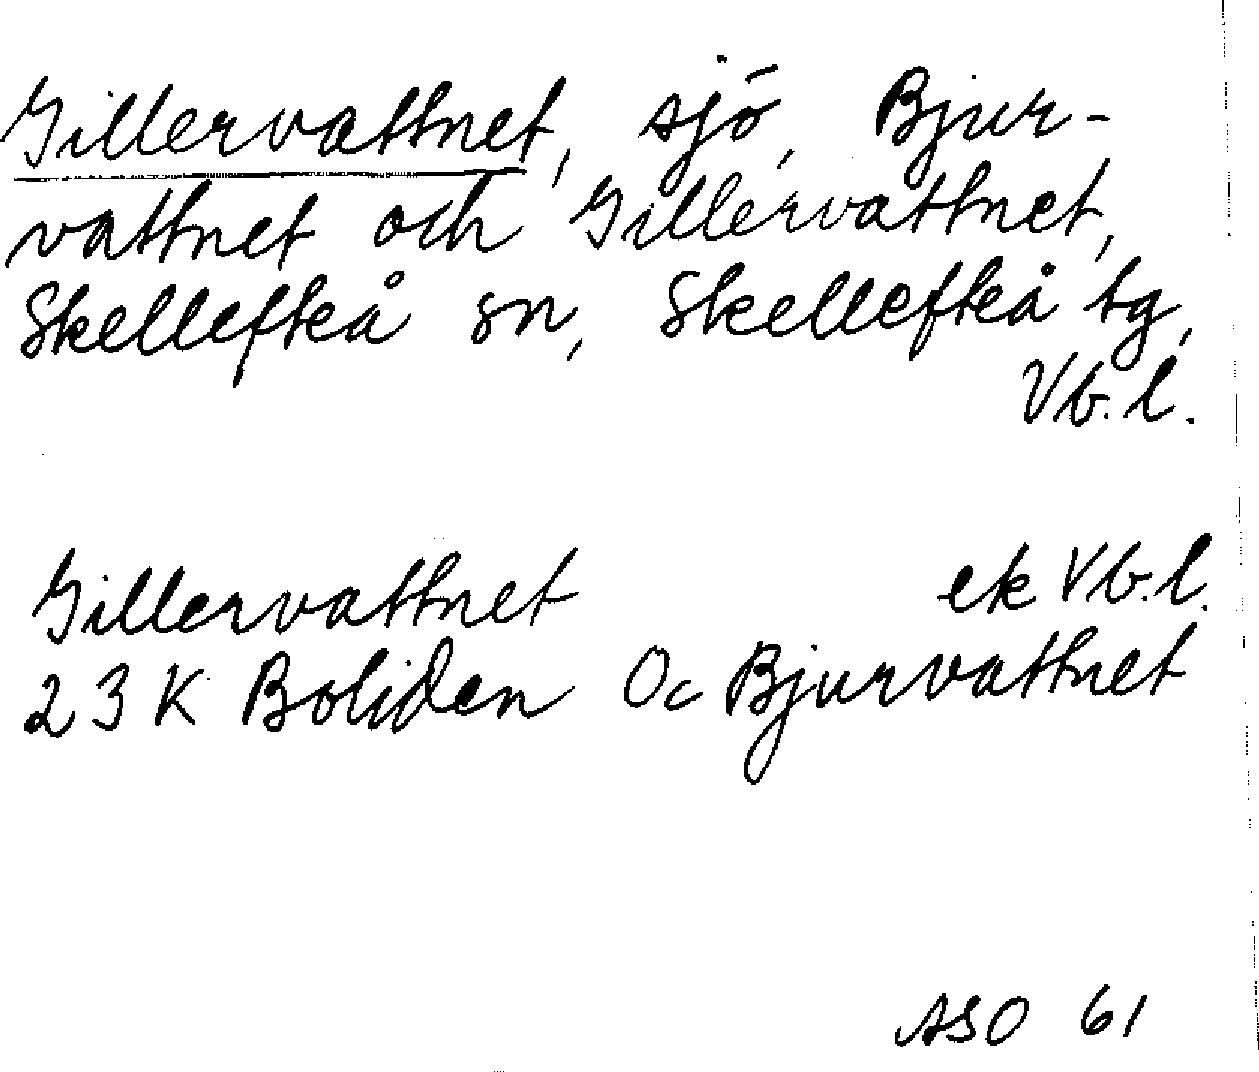 Gillervattnet, sjö, Bjur-
vattnet och Gillervattnet,
Skellefteå sn, Skellefteå tg,
Vb. l.
Gillervattnet ek Vb. l.
23 K Boliden Oc Bjurvattnet
ASO 61